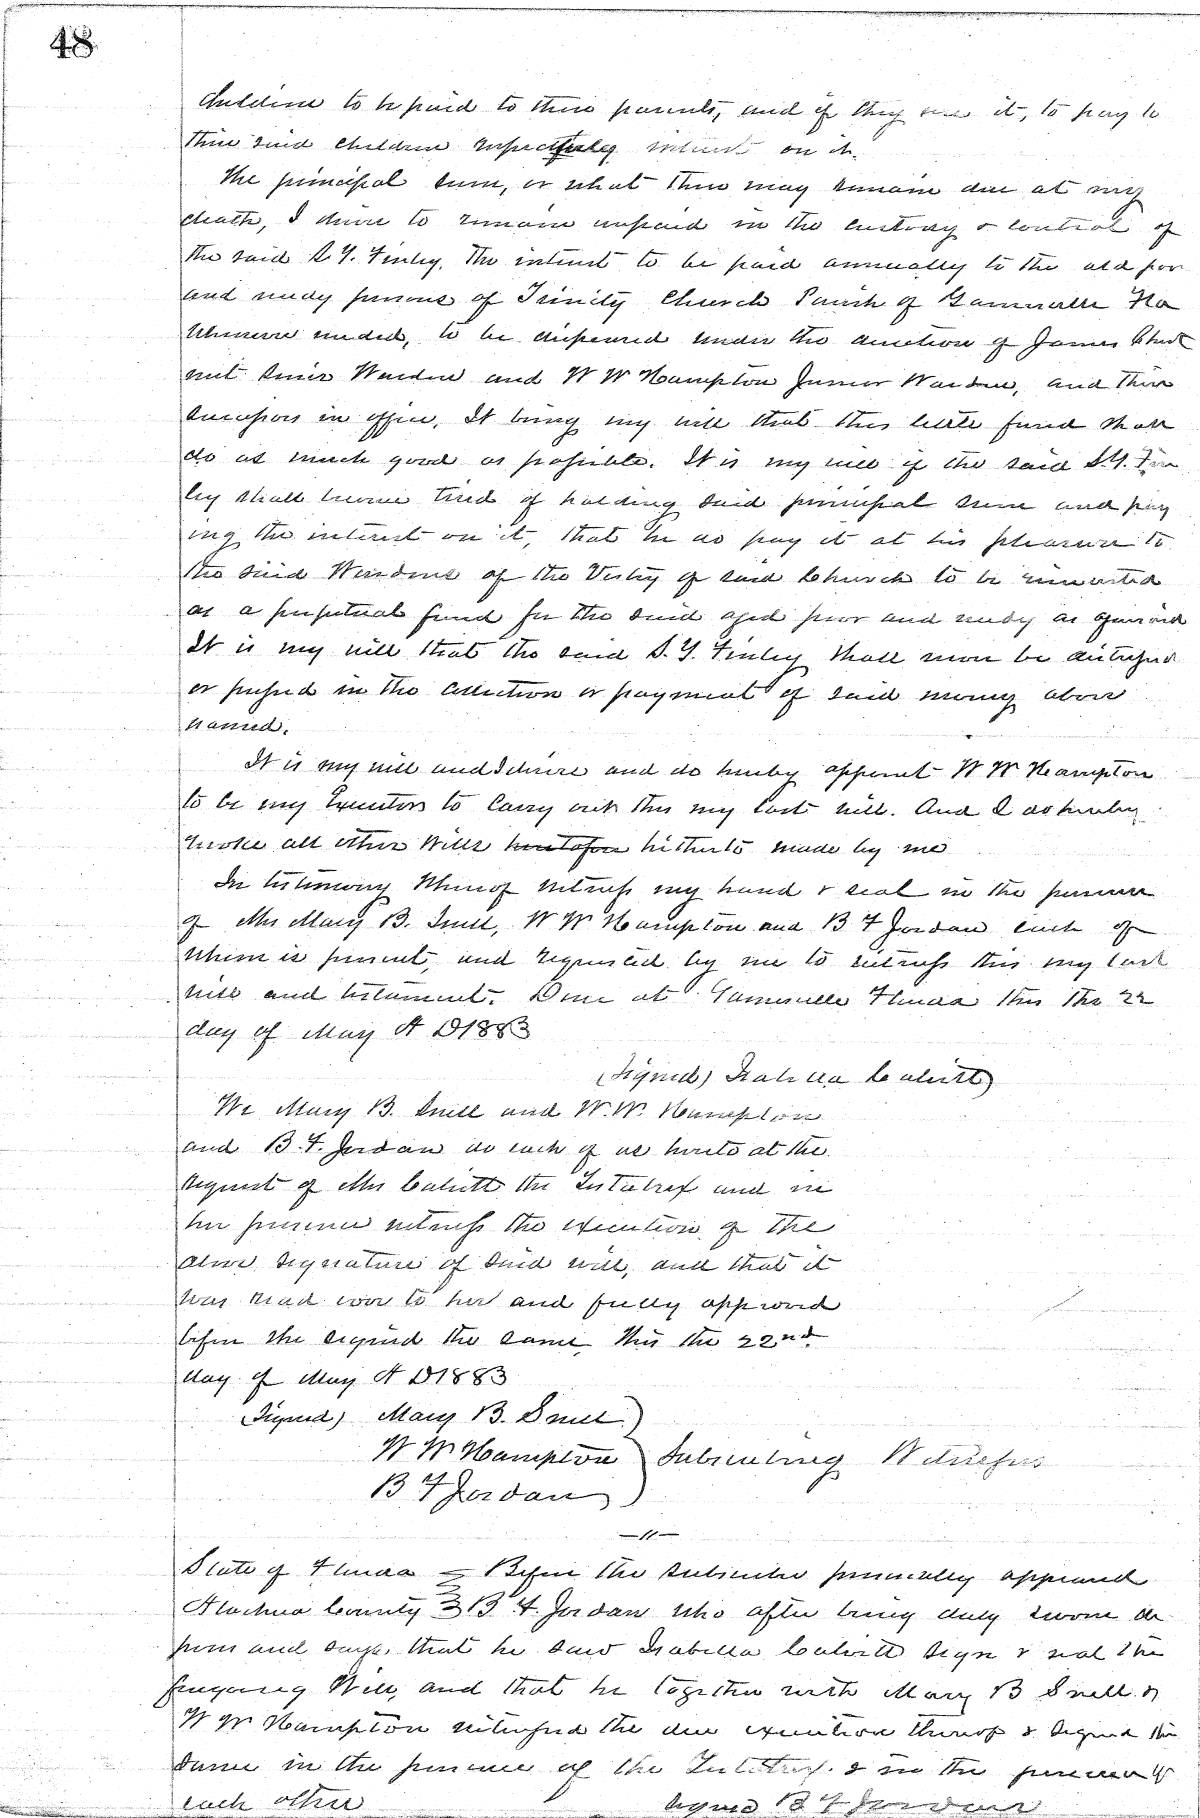 48
children to be paid to their parents, and if they use it, to pay to
their said children respectively interest on it.
The principal sum, or what there may remain due at my
death, I desire to remain unpaid in the custody & control of
the said S. Y. Finley. The interest to be paid annually to the old poor
and needy persons of Trinity Church Parish of Gainesville Fla
whenever needed, to be dispensed under the direction of James Chest
nut Senior Warden and W W Hampton Junior Warden, and their
successors in office. It being my will that this little fund shall
do as much good as possible. It is my will if the said S. Y. Fin
ley shall become tired of holding said principal sum and pay
ing the interest on it, that he do pay it at his pleasure to
the said Wardens of the Vestry of said Church to be invested
as a perpetual fund for the said aged poor and needy as aforesaid
It is my will that the said S. Y. Finley shall never be distressed
or pressed in the collection or payment of said money above
named.
It is my will and desire and do hereby appoint W W Hampton
to be my Executor to carry out this my last will. And I do hereby
revoke all other Wills heretofore hitherto made by me
In testimony Whereof witness my hand & seal in the presence
of Mrs Mary B. Snell, W W Hampton and B F Jordan each of
whom is present, and requested by me to witness this my last
will and testament. Done at Gainesville Florida this the 22
day of May A D 1883
(Signed) Isabella Calvitt)
We Mary B. Snell and W. W. Hampton
and B. F. Jordan do each of us hereto at the
request of Mrs Calvitt the Testatrix and in
her presence witness the execution of the
above signature of said will, and that it
was read over to her and fully approved
before she signed the same, this the 22nd
day of May A D 1883
(Signed) Mary B. Snell )
W W Hampton ) Subscribing Witnesses
B F Jordan )
—"—
State of Florida } Before the subscriber personally appeared
Alachua County } B. F. Jordan who after being duly sworn de
poses and says, that he saw Isabella Calvitt sign & seal the
foregoing Will, and that he together with Mary B Snell &
W W Hampton witnessed the due execution thereof & signed the
same in the presence of the Testatrix & in the presence of
each other signed B F Jordan